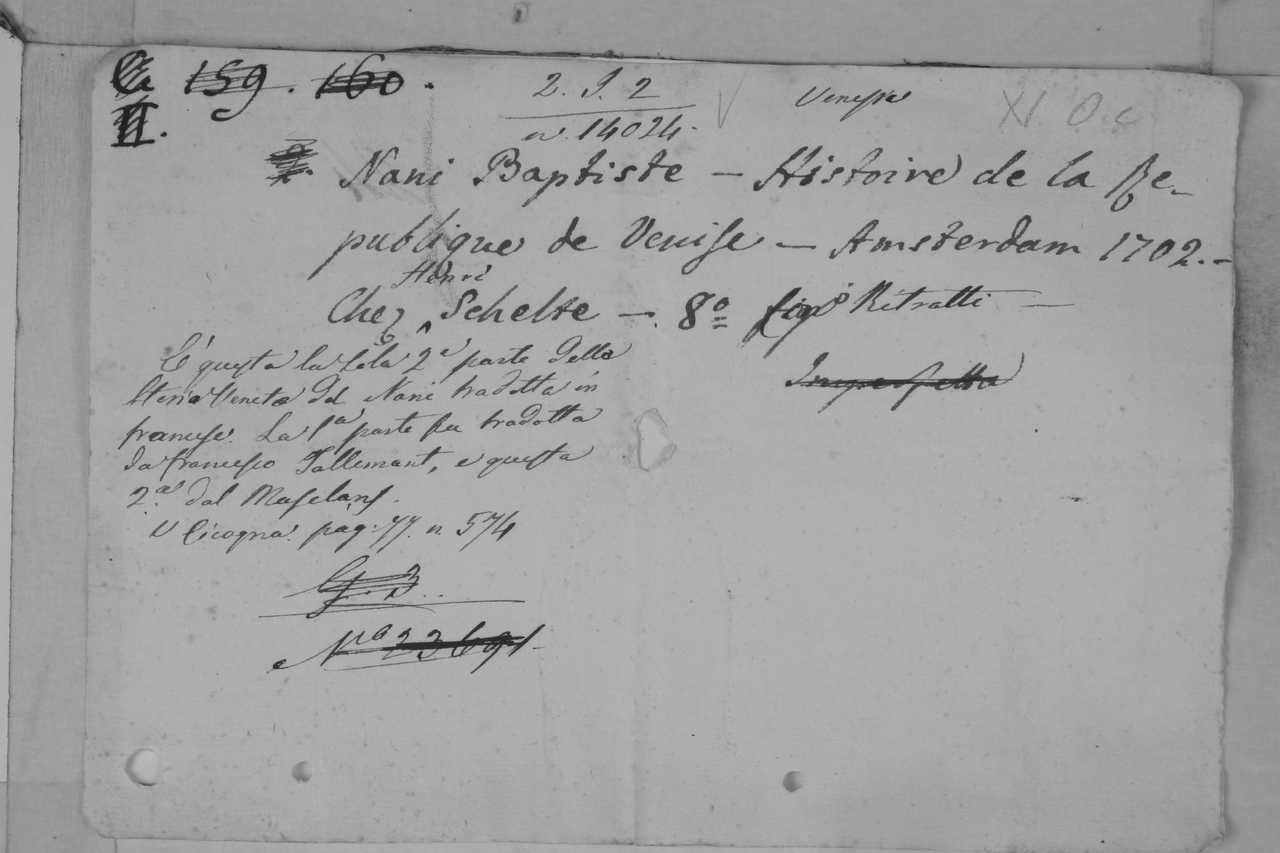 159. 160.
2. J. 2
n. 14024.
II.
Nani Baptiste — Histoire de la Re-
publique de Venise — Amsterdam 1702.-
Chez Henri Schelte — 8º figº Ritratti —
Imperfetta
È questa la sola 2ª parte della
Storia Veneta del Nani tradotta in
francese. La 1ª parte fu tradotta
da Francesco Tallemant, e questa
2ª dal Masclary.
V Cicogna pag. 77. n. 574
Nº 23691